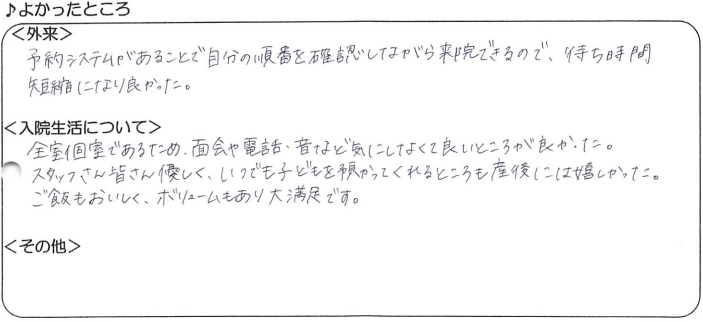 ♪よかったところ
<外来>
予約システムがあることで自分の順番を確認しながら来院できるので、待ち時間
短縮になり良かった。
<入院生活について>
全室個室であるため、面会や電話・音など気にしなくて良いところが良かった。
スタッフさん皆さん優しく、いつでも子どもを預かってくれるところも産後には嬉しかった。
ご飯もおいしく、ボリュームもあり大満足です。
<その他>